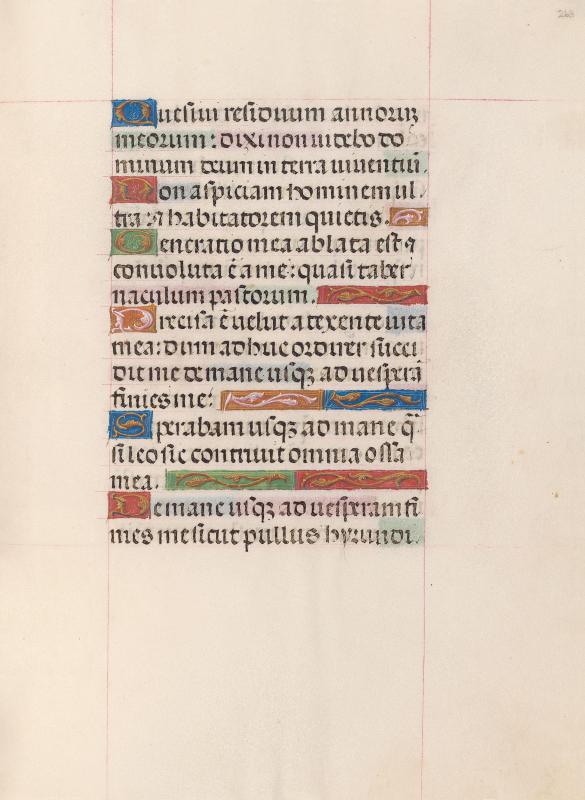 263
Quesiui residuum annorum
meorum: dixi non uidebo do
minum deum in terra uiuentiū.
Non aspiciam hominem ul
tra ⁊ habitatorem quietis.
Generatio mea ablata est ⁊
conuoluta ē a me: quasi taber
naculum pastorum.
Precisa ē uelut a texente uita
mea: dum adhuc ordirer succi
dit me de mane usqꝫ ad uesperā
finies me:
Sperabam usqꝫ ad mane q̄
si leo sic contriuit omnia ossa
mea.
De mane usqꝫ ad uesperam fi
nies me sicut pullus hyrundi.